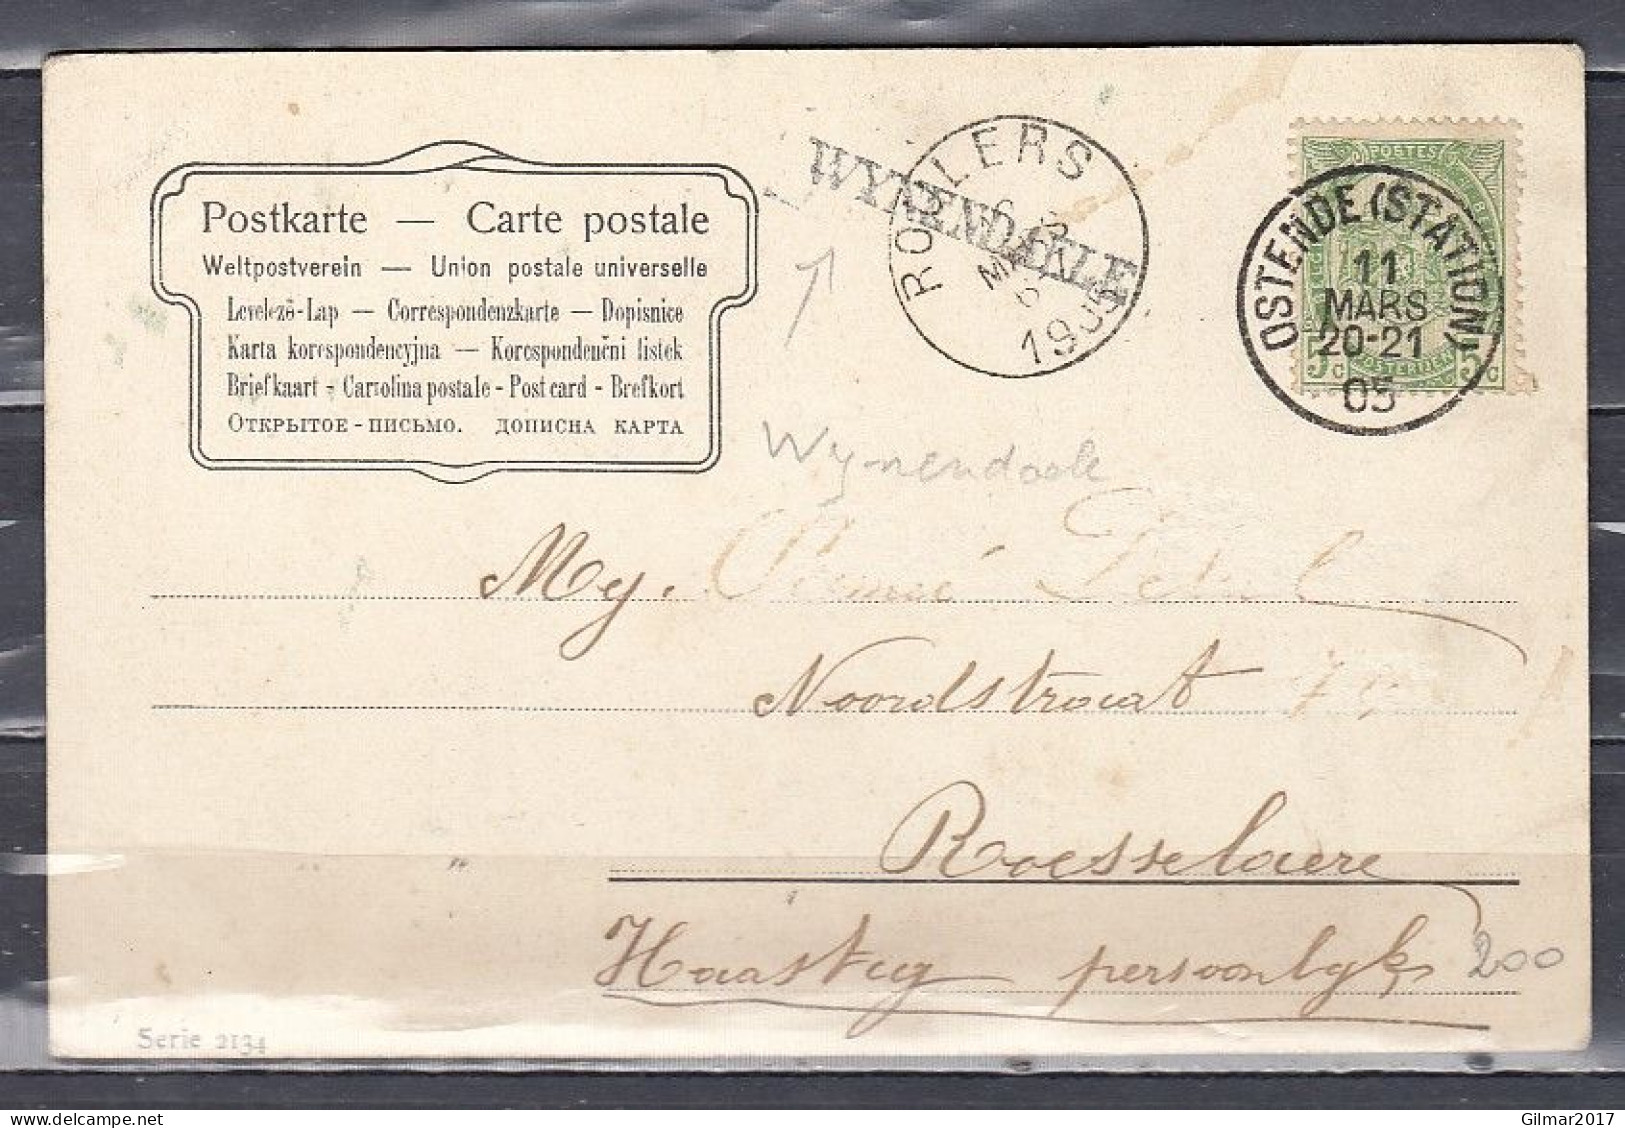 Postkarte — Carte postale
Weltpostverein — Union postale universelle
Levelezö-Lap — Correspondenzkarte — Dopisnice
Karta korespondencyjna — Korespondenčni listek
Briefkaart - Cartolina postale - Post card - Brefkort
ОТКРЫТОЕ - ПИСЬМО. ДОПИСНА КАРТА
WYNENDAELE
ROULERS
1905
POSTES
5 C
5 C
OSTENDE (STATION)
11
MARS
20-21
05
Wynendaele
My.
Noordstraat
Roesselaere
Haastig persoonlyk
200
Serie 2134
Gilmar2017